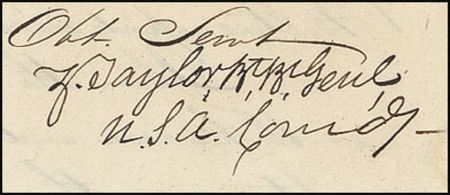 Obt. Servt
Z. Taylor, Bt. Br. Genl.
U.S.A. Comdg